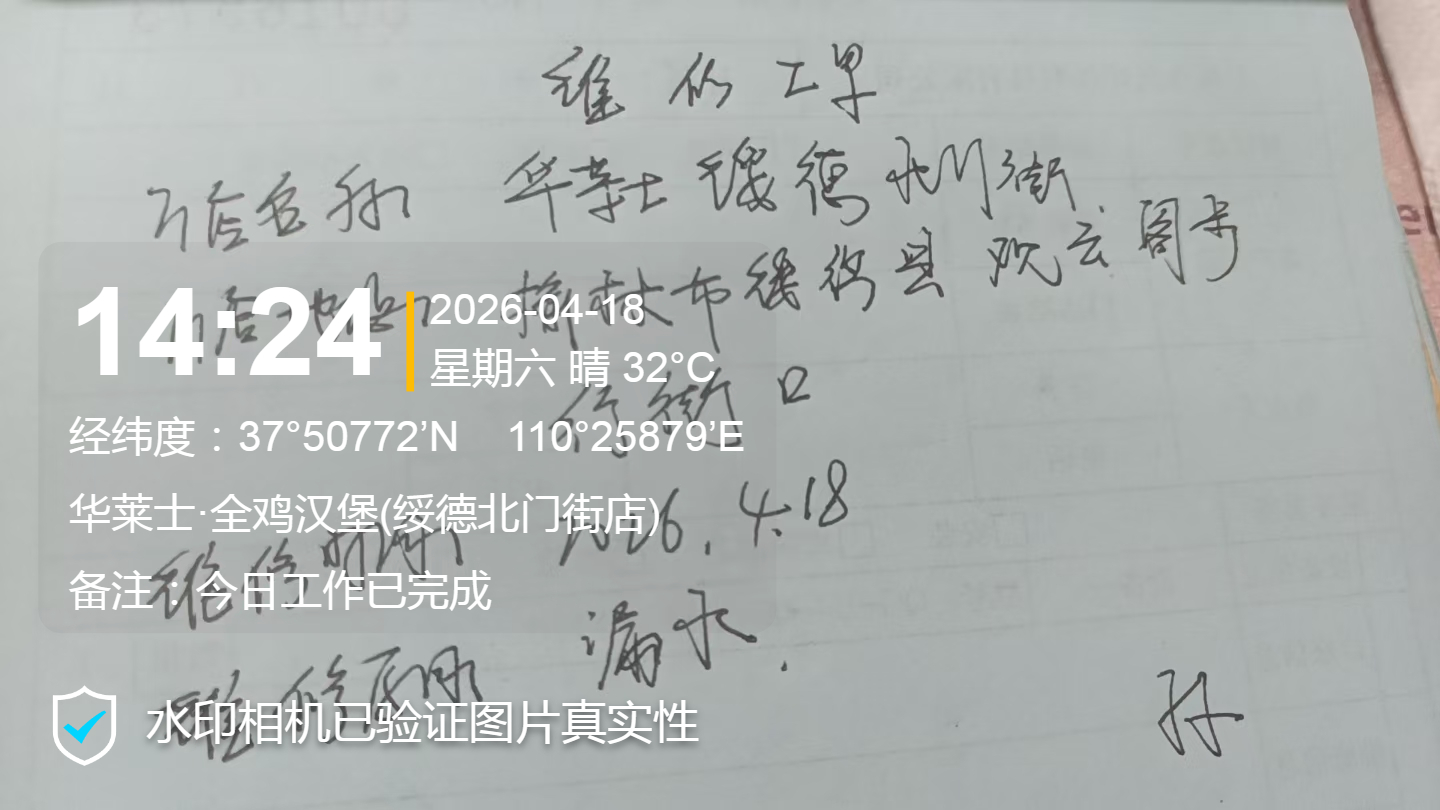 维修工单
门店名称 华莱士绥德北门街
门店地址 榆林市绥德县观云阁步
行街口
14:24
2026-04-18
星期六 晴 32°C
经纬度：37°50772’N 110°25879’E
华莱士·全鸡汉堡(绥德北门街店)
备注：今日工作已完成
维修时间 2026.4.18
维修原因 漏水.
孙
水印相机已验证图片真实性